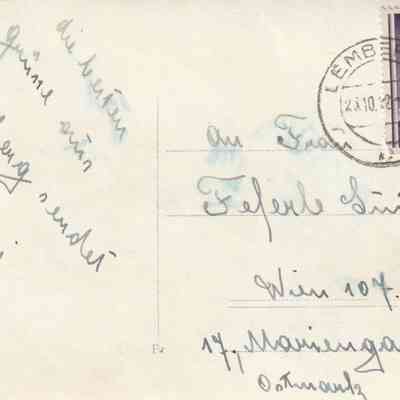 die besten
Grüsse aus
sendet
LEMBE
An Frau
Feferle
Wien 107.
17, Marienga
Ostmark